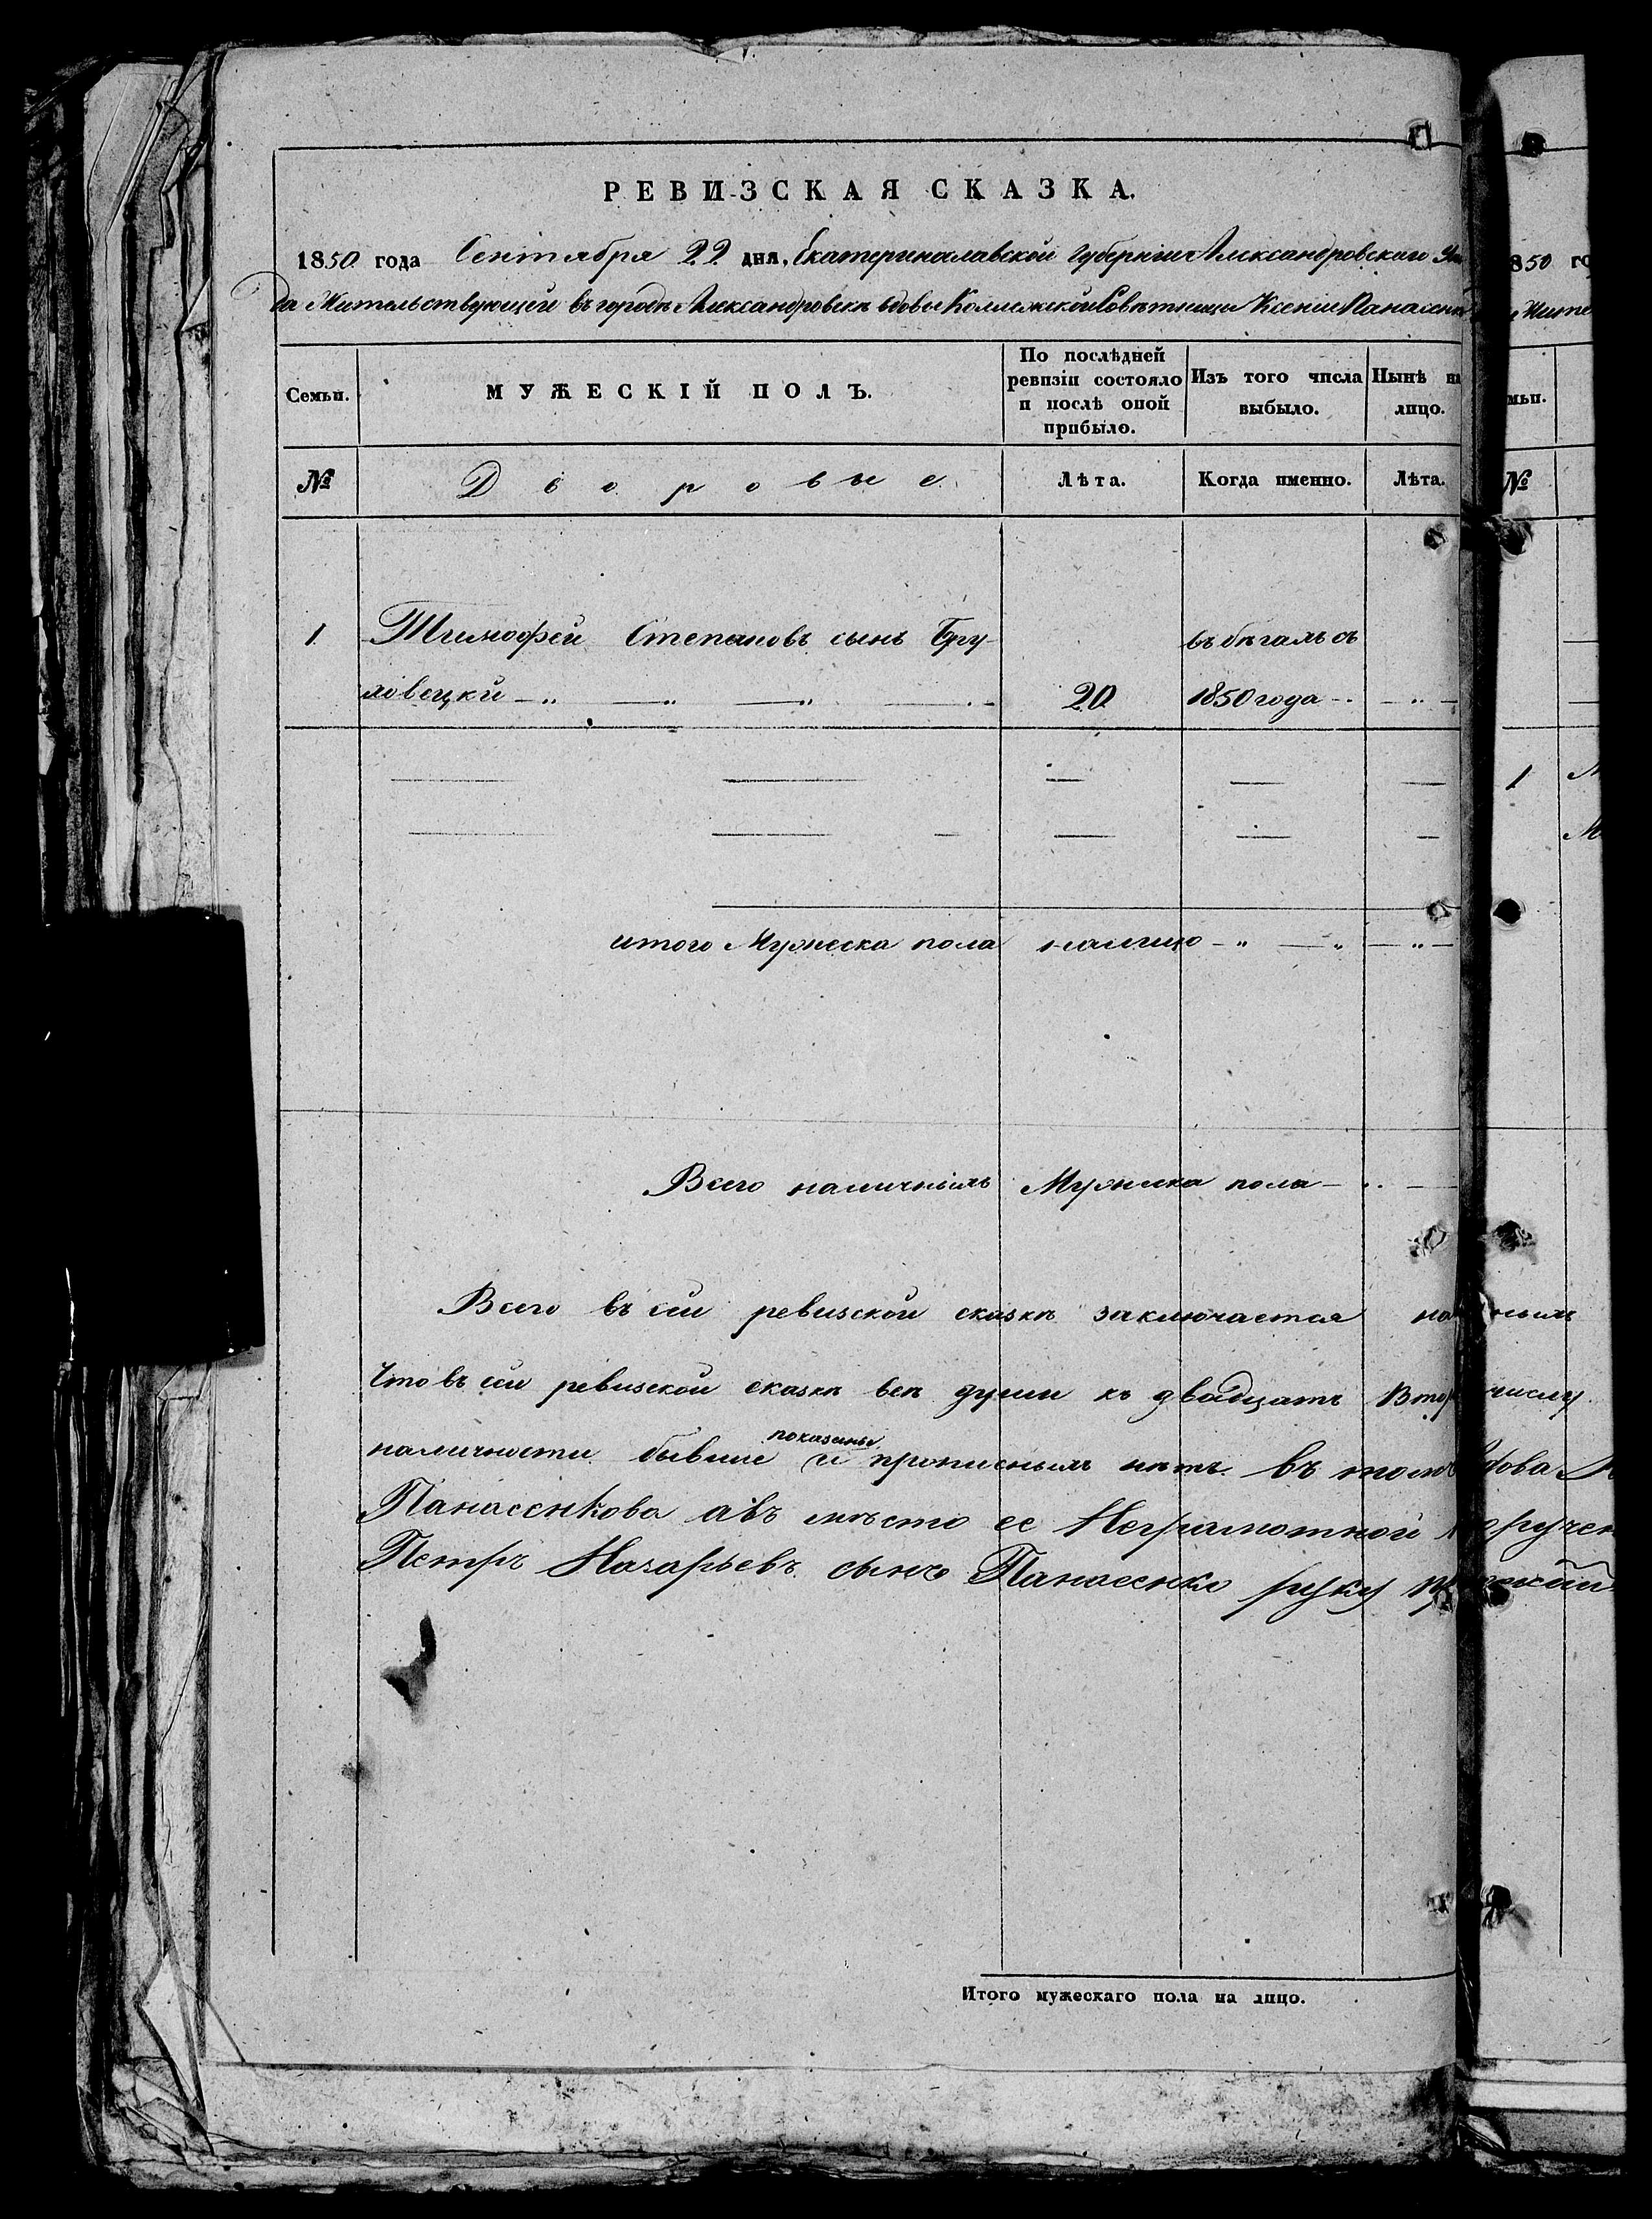 РЕВИЗСКАЯ СКАЗКА.
1850 года Сентября 22 дня, Екатеринославской губерніи Александровскаго
да Жительствующей въ городѣ Александровскѣ вдовы Коллежской Совѣтницы Ксеніи Панасенк
Семьи.
МУЖЕСКІЙ ПОЛЪ.
По послѣдней ревизіи состояло и послѣ оной прибыло.
Изъ того числа выбыло.
Нынѣ на лицо.
№
Дворовые.
Лѣта.
Когда именно.
Лѣта.
1 Тимофей Степановъ сынъ въ бѣгахъ съ
ловецкій 20 1850 года
итого Мужеска пола налицо
Всего наличныхъ Мужеска пола
Всего въ сей ревизской сказкѣ заключается
Что въ сей ревизской сказкѣ всѣ души къ двадцать
показаны
наличности бывшие и прописныхъ нѣтъ. Въ томъ
Панасенкова авъ мѣсто ее Неграмотной
Петръ Назарьевъ сынъ Панасенко руку
Итого мужескаго пола на лицо.
1850 го
Жите
мьи.
№
1
числу